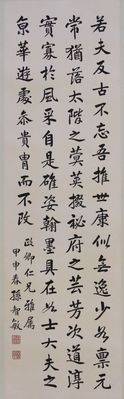 若夫反古不忘吾推世康似無逸少稟元
常猶落太階之蓂莢掇祕府之芸芳次道淳
實寡於風采自是確姿翰墨具在以士大夫之
京華遊處忝貴胄而不改
政卿仁兄雅屬
甲申春孫智敏